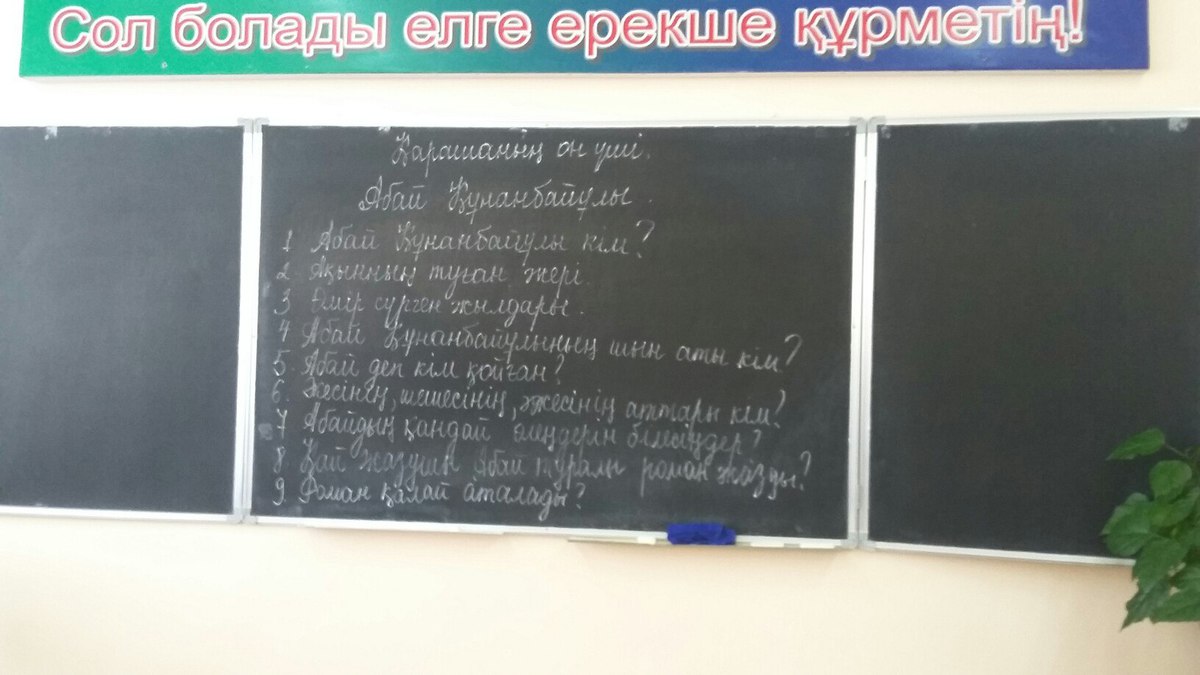 Сол болады елге ерекше құрметің!
Қарашаның он үші.
Абай Құнанбайұлы.
1 Абай Құнанбайұлы кім?
2 Ақынның туған жері.
3 Өмір сүрген жылдары.
4 Абай Құнанбайұлының шын аты кім?
5. Абай деп кім қойған?
6. Әкесінің, шешесінің, әжесінің аттары кім?
7 Абайдың қандай өлеңдерін білесіңдер?
8 Қай жазушы Абай туралы роман жазды?
9. Роман қалай аталады?